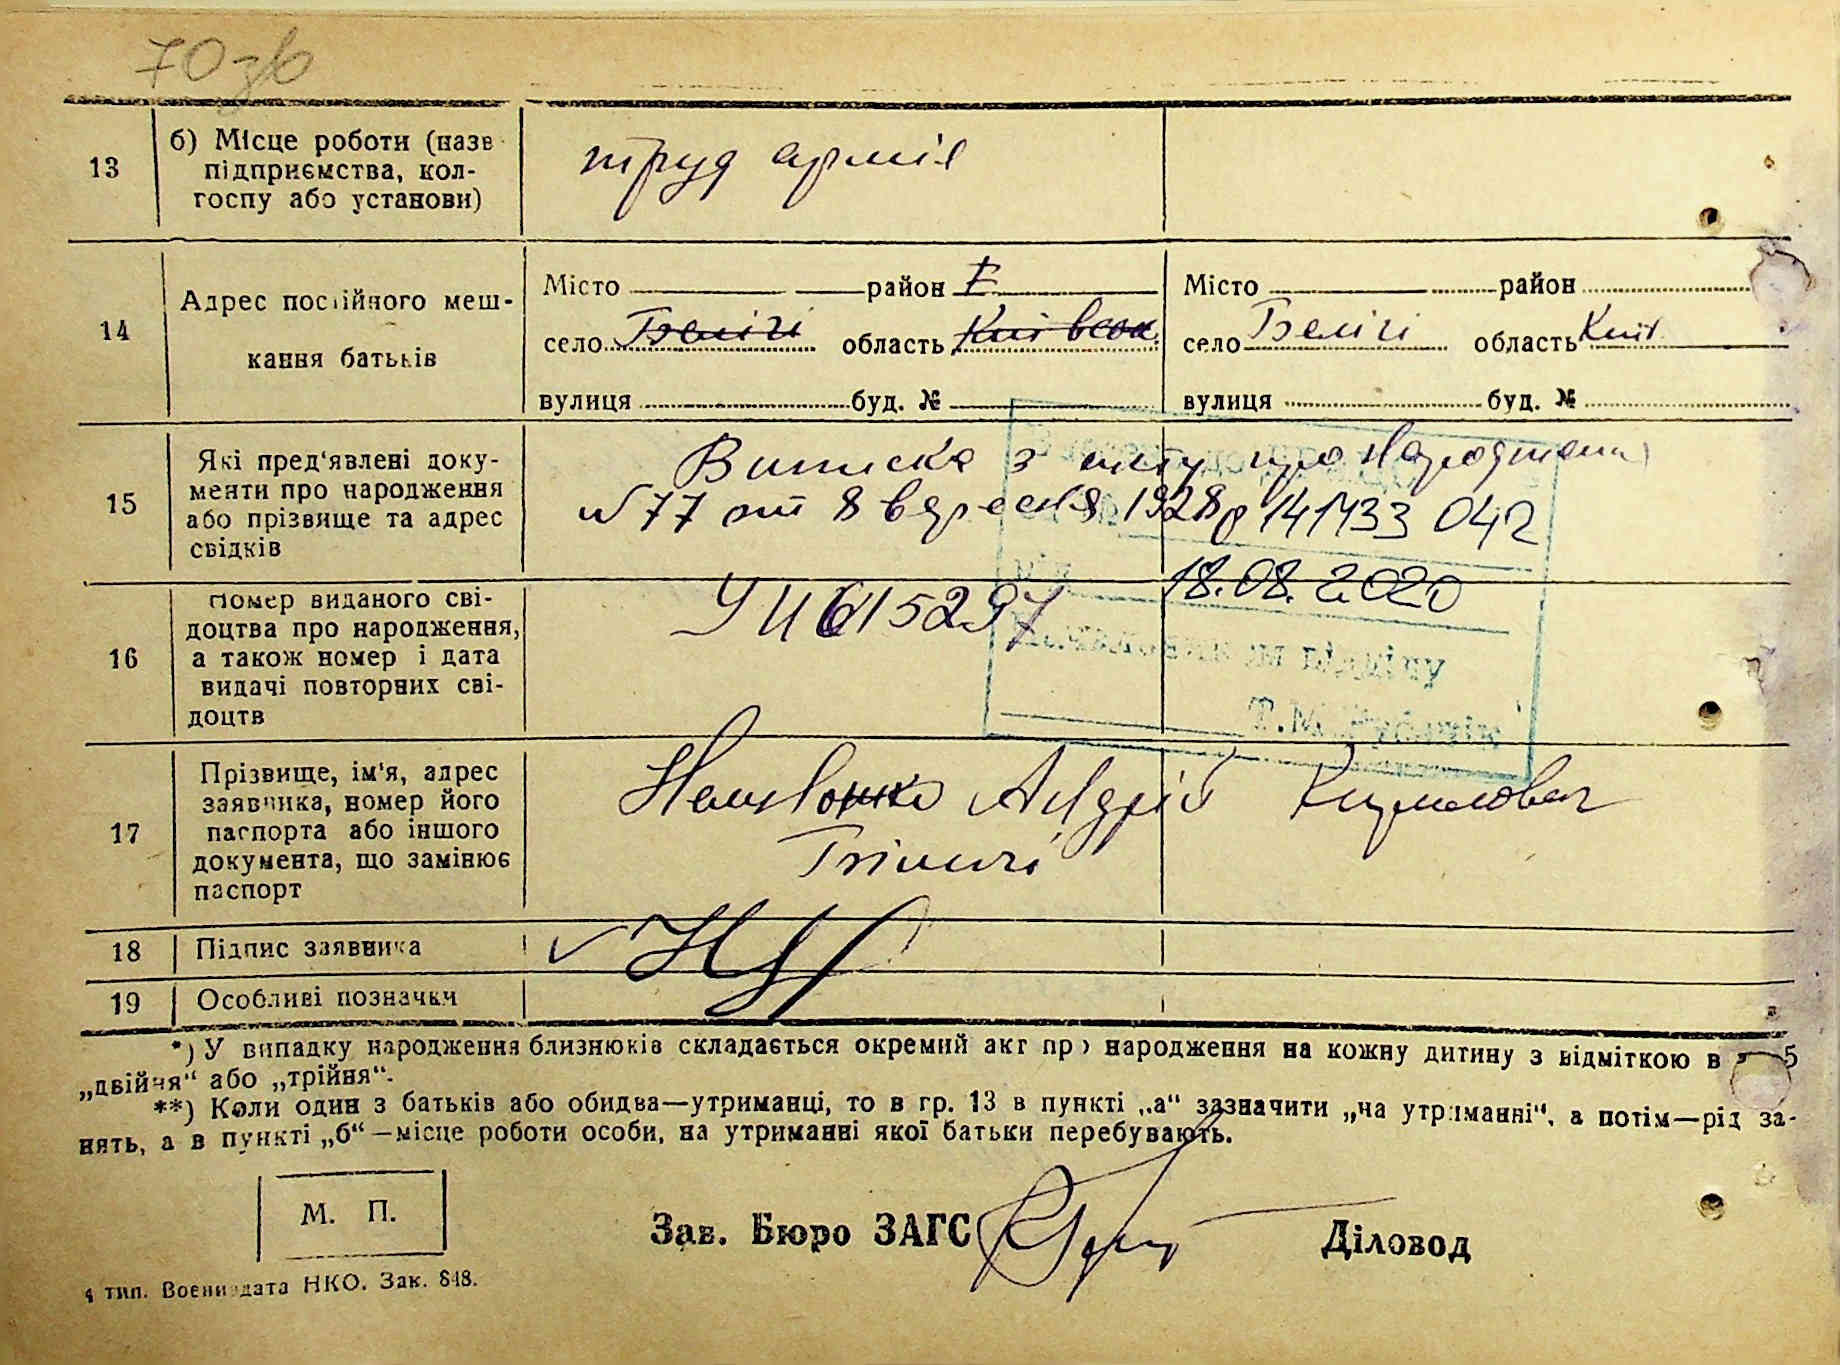 70зв
13
б) Місце роботи (назв
підприємства, кол-
госпу або установи)
труд армія
14
Адрес постійного меш-
кання батьків
Місто район
село Белічі область Київськ.
вулиця буд. №
Місто район
село Белічі область Київ
вулиця буд. №
15
Які пред'явлені доку-
менти про народження
або прізвище та адрес
свідків
Виписка з акту про народження
№77 от 8 вересня 1928р 141133 042
18.08.2020
16
Номер виданого сві-
доцтва про народження,
а також номер і дата
видачі повторних сві-
доцтв
УИ 615297
17
Прізвище, ім'я, адрес
заявника, номер його
паспорта або іншого
документа, що замінює
паспорт
Андрій
Біличі
18
Підпис заявника
19
Особливі позначки
*) У випадку народження близнюків складається окремий акт про народження на кожну дитину з відміткою в 5
„двійня“ або „трійня“.
**) Коли один з батьків або обидва—утриманці, то в гр. 13 в пункті „а“ зазначити „на утриманні“, а потім—рід за-
нять, а в пункті „б“—місце роботи особи, на утриманні якої батьки перебувають.
М. П.
Зав. Бюро ЗАГС
Діловод
4 тип. Воениздата НКО. Зак. 848.